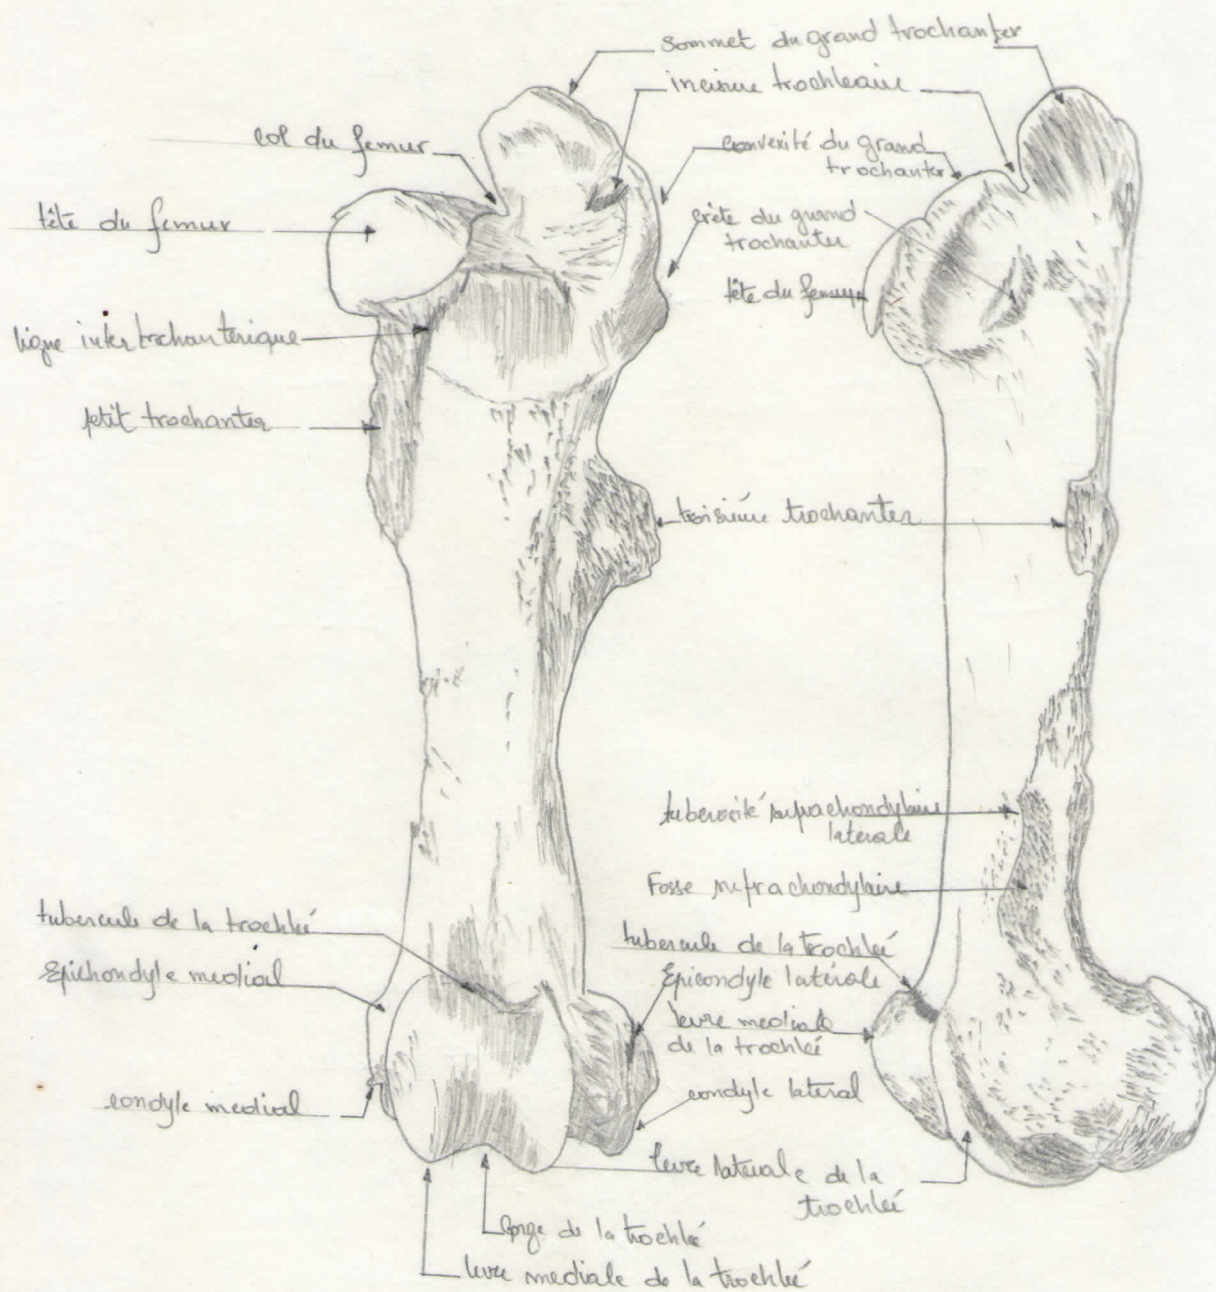 sommet du grand trochanter
incisure trochleaire
col du femur
convexité du grand
trochanter
tête du femur
crète du guand
trochanter
tête du femur
ligne intertrochantérique
petit trochanter
troisième trochanter
tuberosité suprachondylaire
laterale
Fosse suprachondylaire
tubercule de la trochleé
tubercule de la trochleé
Epichondyle medial
Epicondyle latérale
levre mediale
de la trochleé
condyle medial
condyle latéral
levre laterale de la
trochleé
Gorge de la trochleé
levre mediale de la trochleé